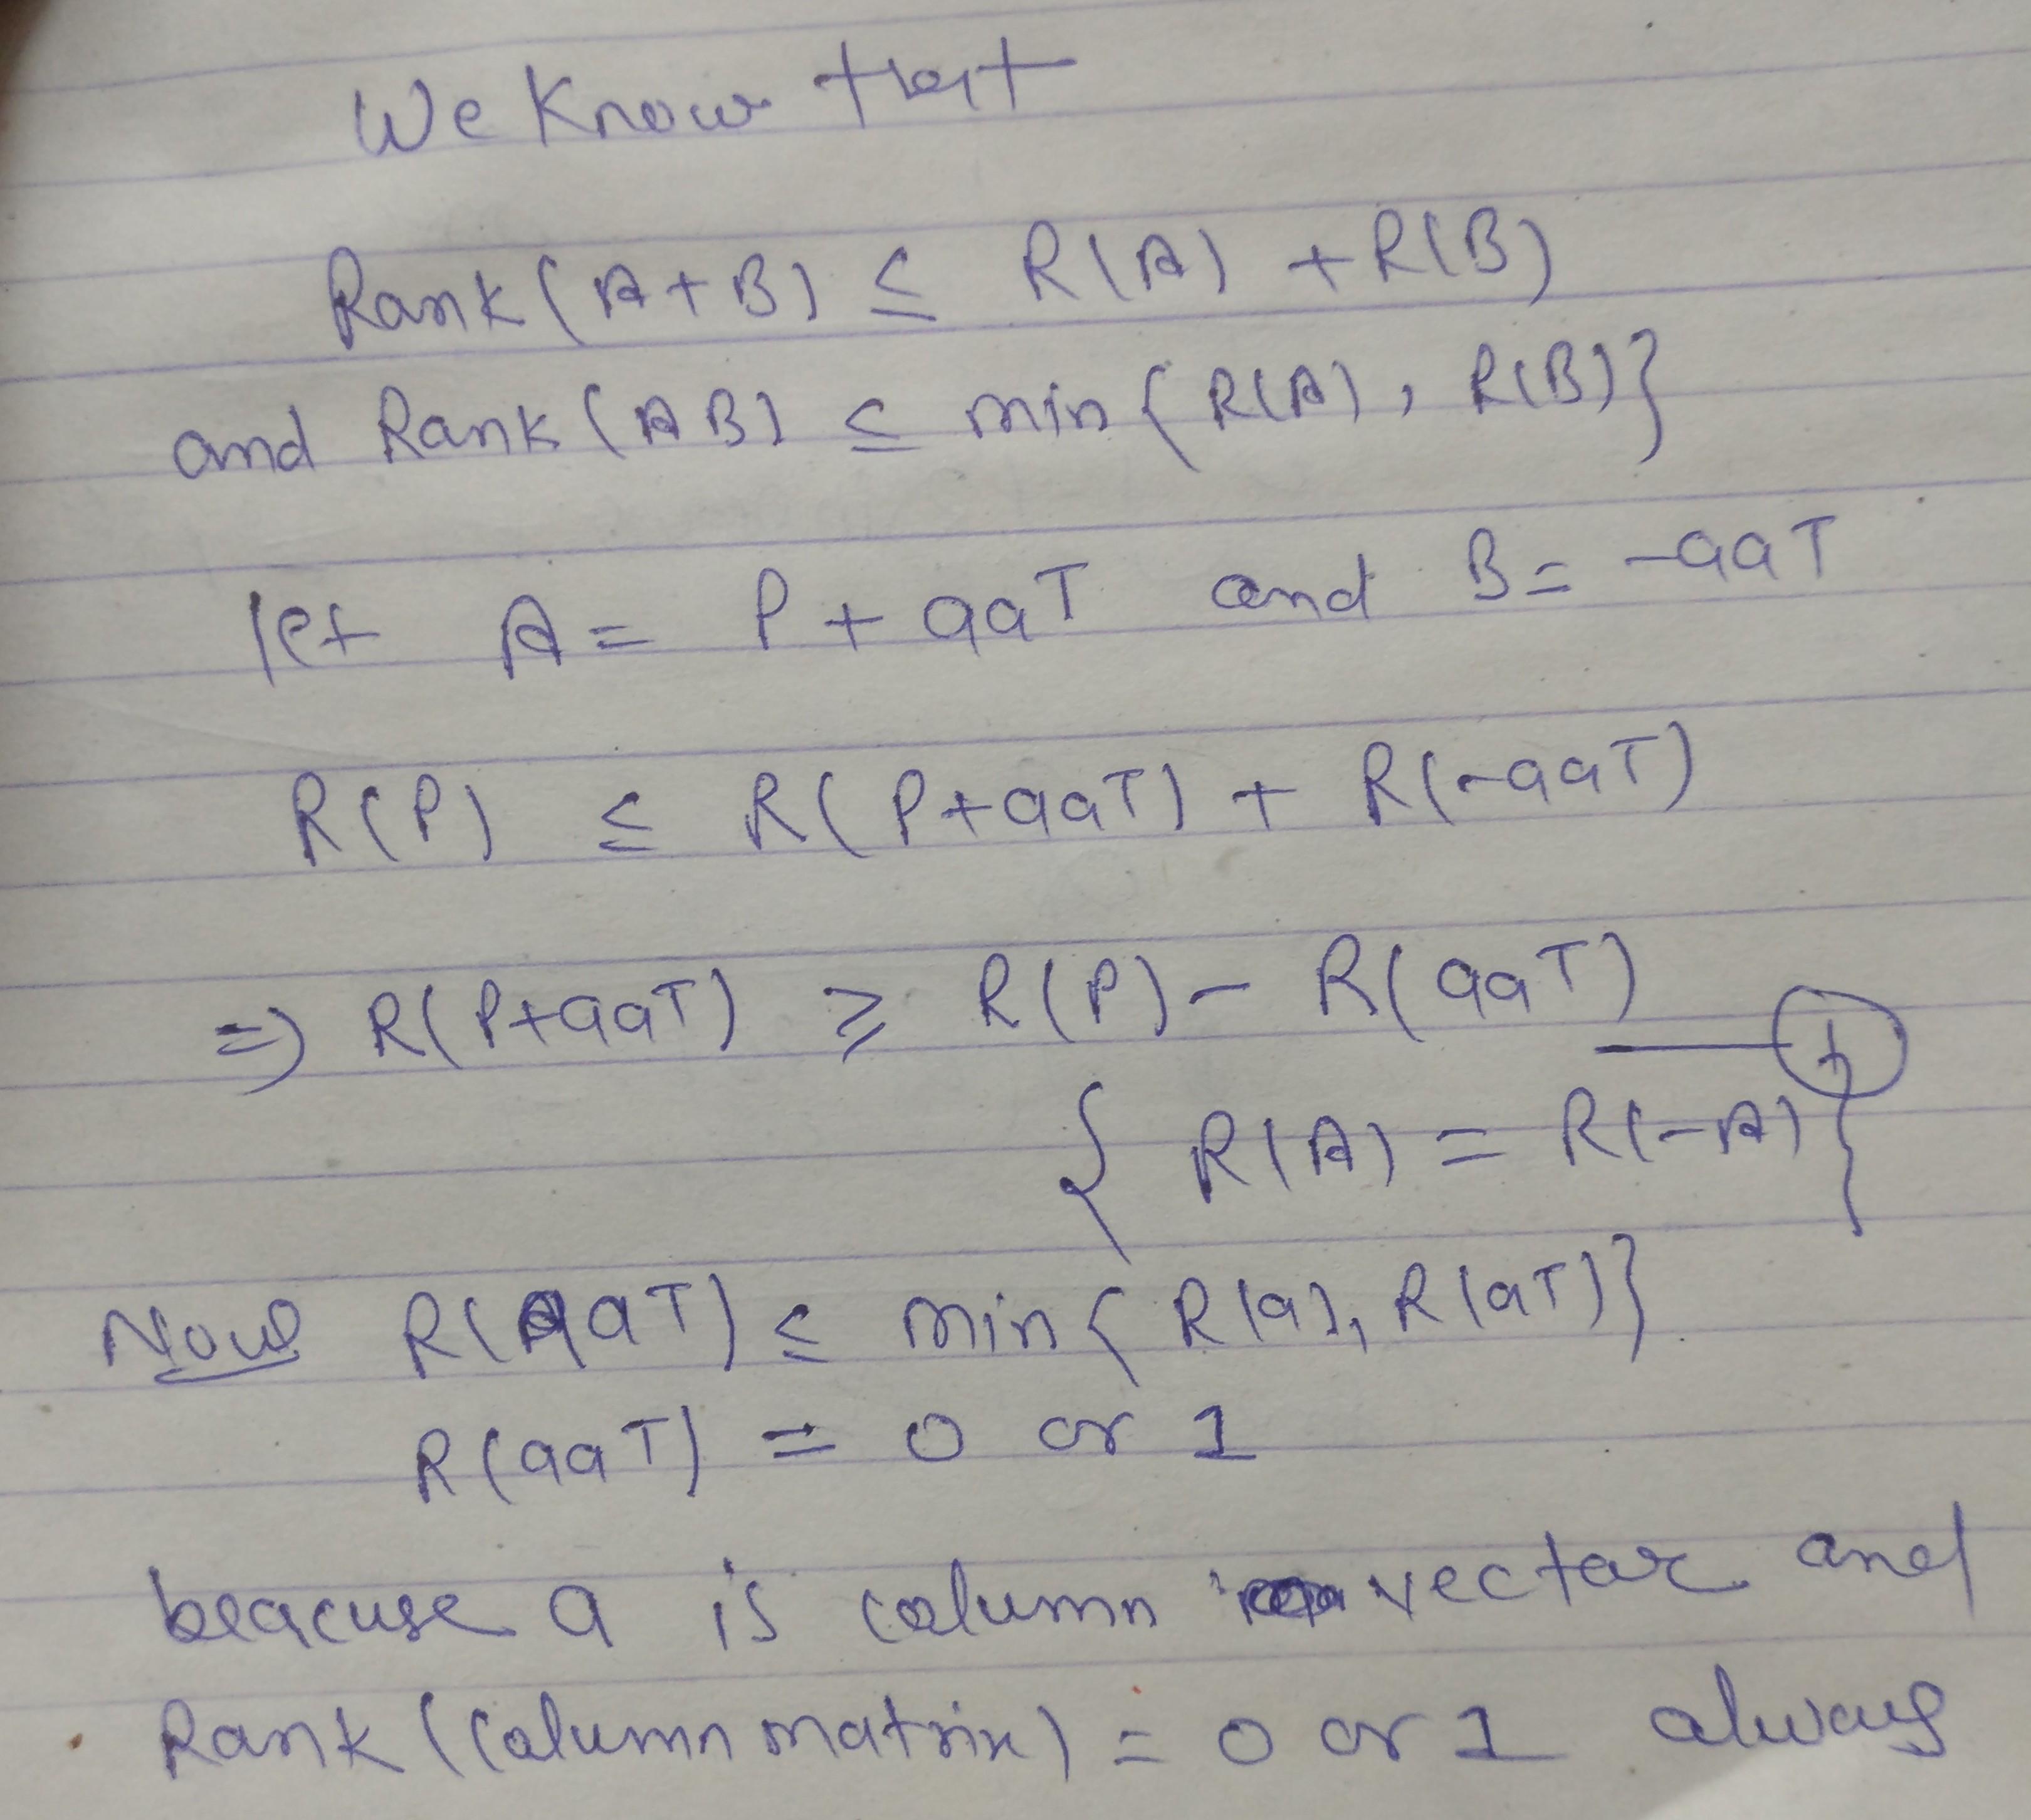 We Know that
Rank(A+B) ≤ R(A) + R(B)
and Rank(AB) ≤ min{R(A), R(B)}
let A = P + aaT and B = -aaT
R(P) ≤ R(P+aaT) + R(-aaT)
=) R(P+aaT) ≥ R(P) - R(aaT) — 1
{ R(A) = R(-A) }
Now R(aaT) ≤ min{ R(a), R(aT)}
R(aaT) = 0 or 1
beacuse a is column vector and
Rank (column matrix) = 0 or 1 always